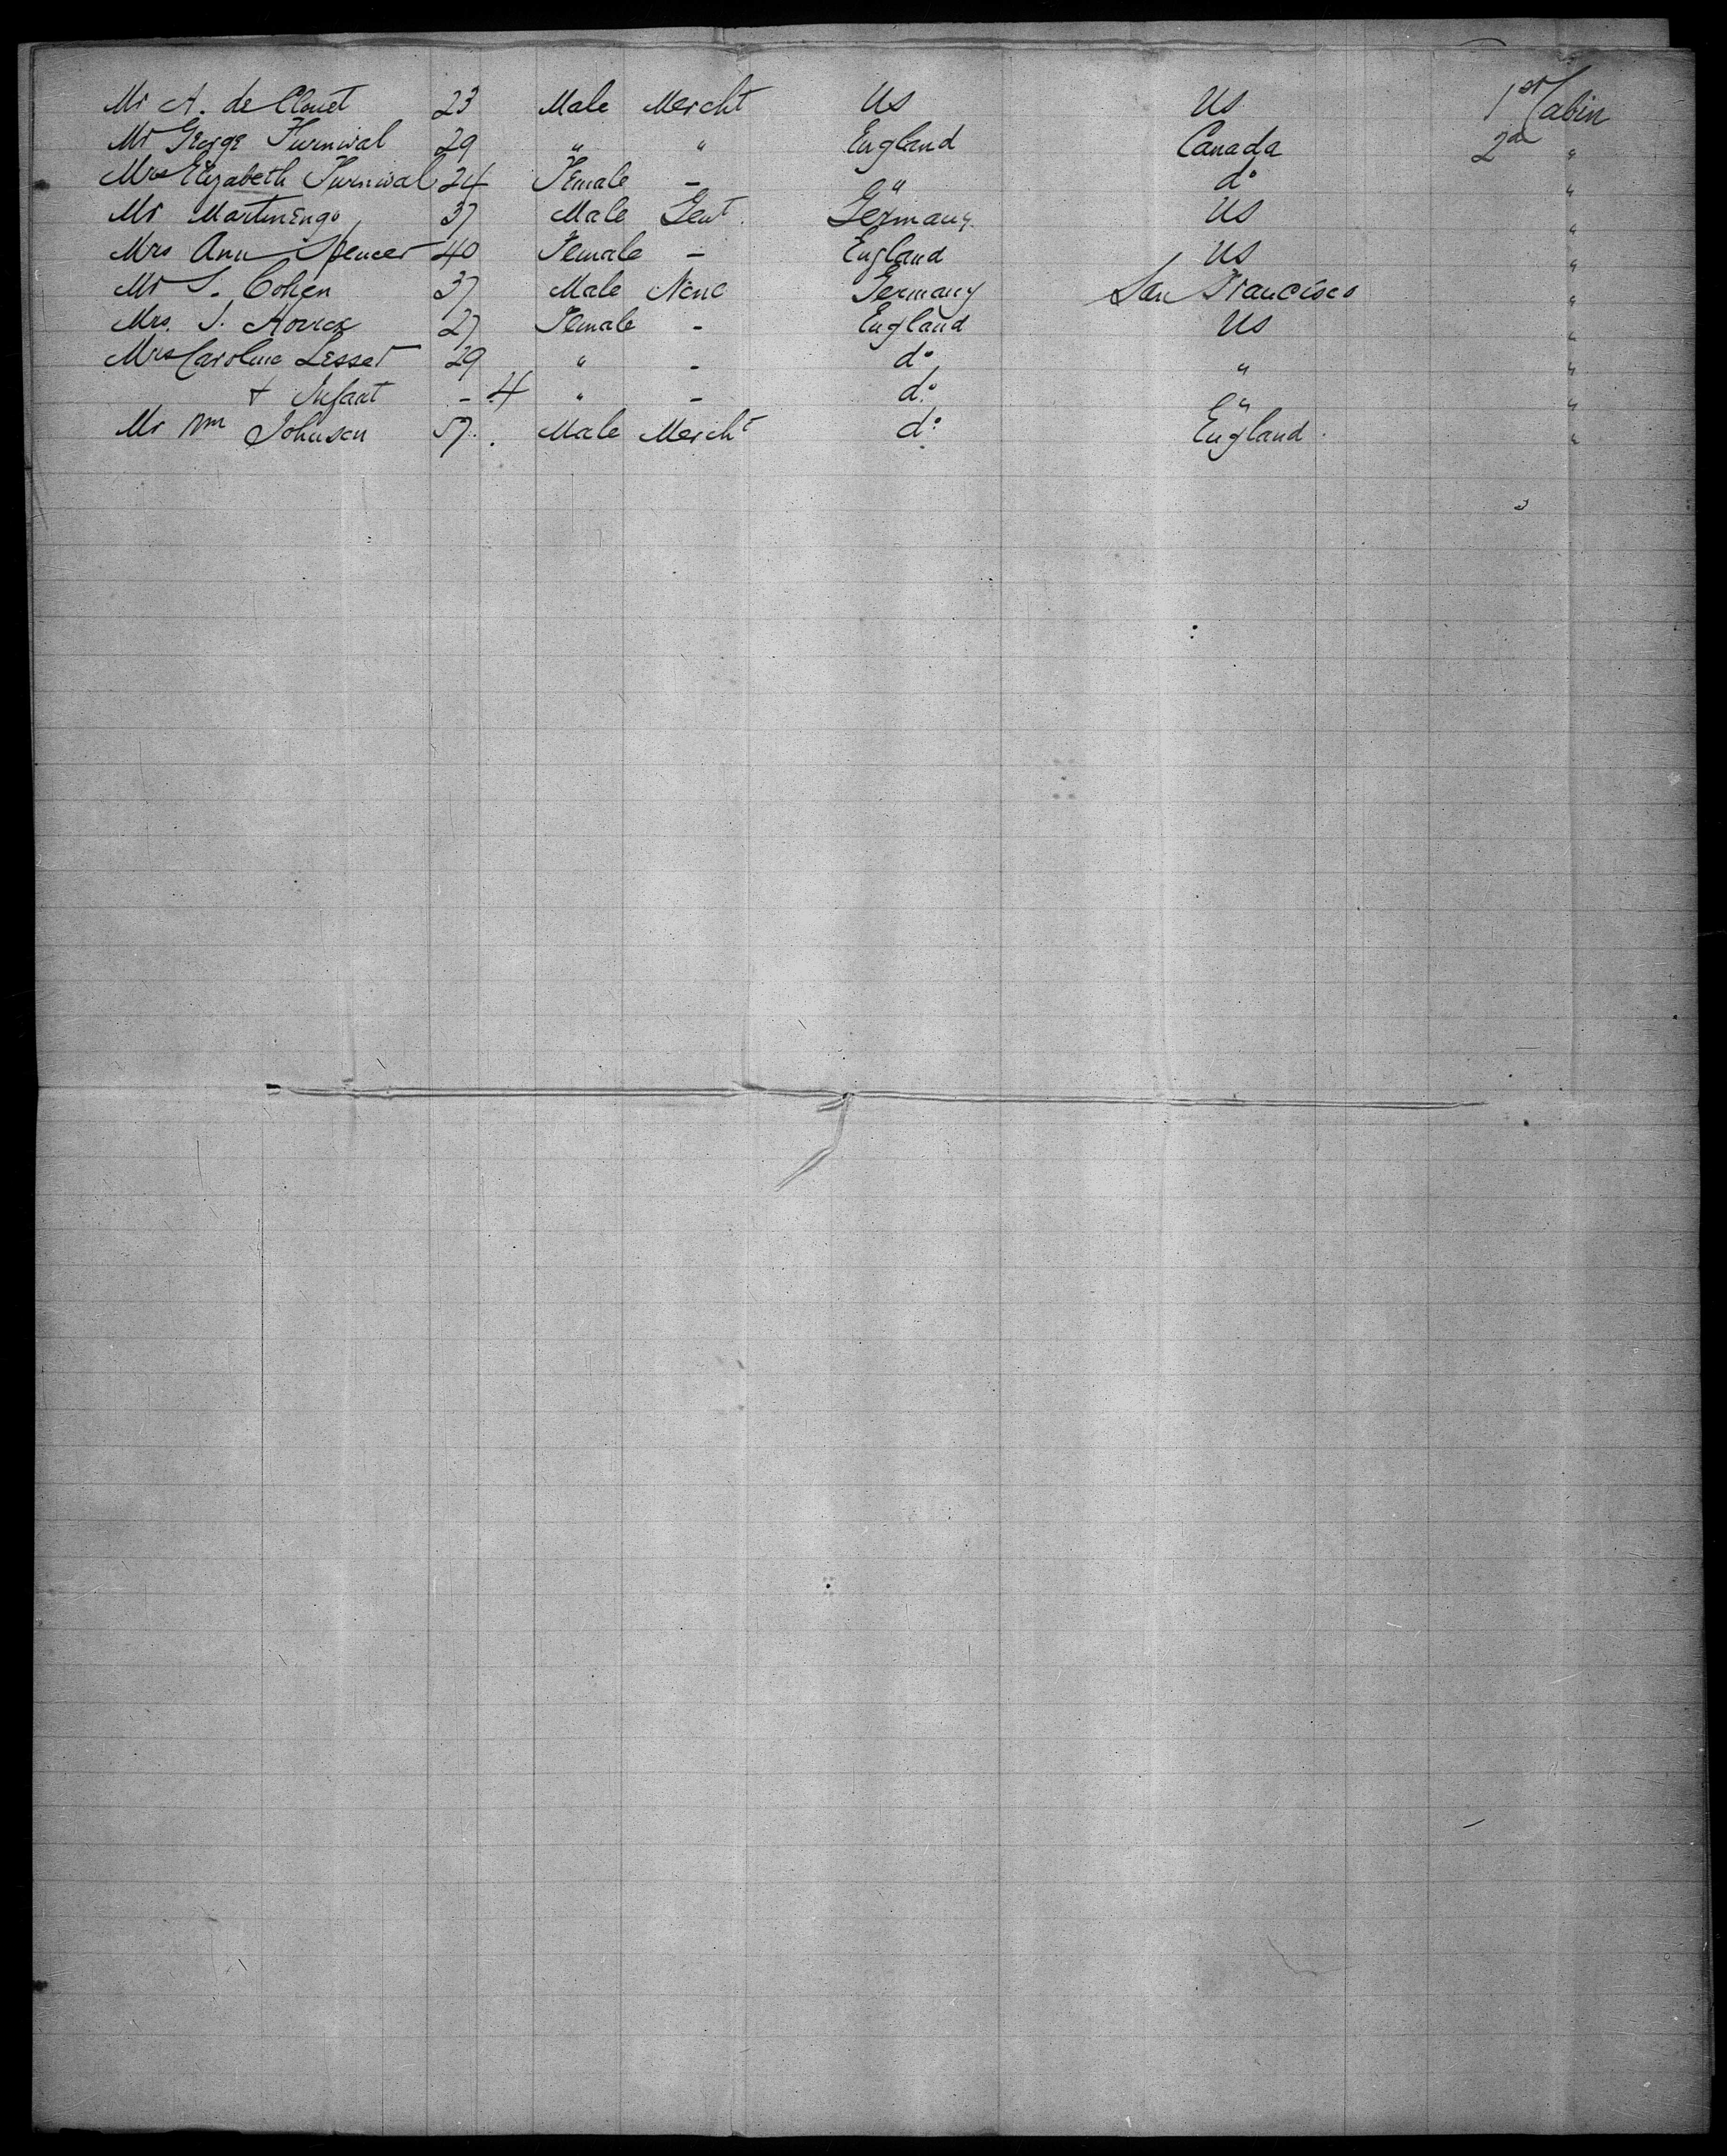 Mr A. de Clouet 23 Male Mercht US US 1st Cabin
Mr George Furnival 29 " " England Canada 2d "
Mrs Elizabeth Furnival 24 Female - " do "
Mr Martinengo 37 Male Gent. Germany US "
Mrs Ann Spencer 40 Female - England US "
Mr S. Cohen 37 Male None Germany San Francisco "
Mrs. S. 27 Female - England US "
Mrs Caroline Lesser 29 " - do " "
+ Infant - 4 " - do " "
Mr Wm Johnson 57 Male Mercht do England "